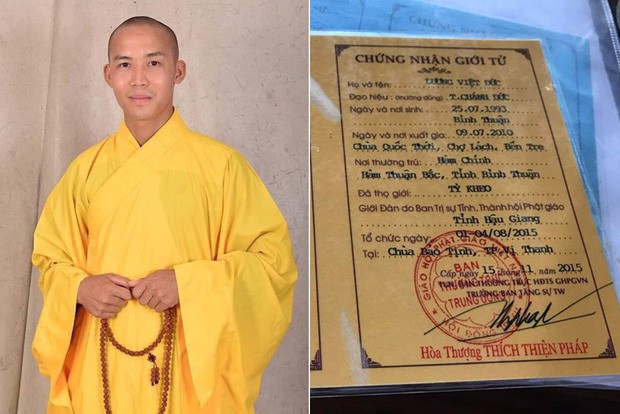 CHỨNG NHẬN GIỚI TỬ
Họ và tên: LƯƠNG VIỆT ĐỨC
Đạo hiệu: (thường dùng) T.CHÁNH ĐỨC
Ngày và nơi sinh: 25.07.1993
Bình Thuận
Ngày và nơi xuất gia: 09.07.2010
Chùa Quốc Thới, Chợ Lách, Bến Tre
Nơi thường trú: Hàm Chính
Hàm Thuận Bắc, Tỉnh Bình Thuận
Đã thọ giới: TỲ KHEO
Giới Đàn do Ban Trị sự Tỉnh, Thành hội Phật giáo
Tỉnh Hậu Giang
Tổ chức ngày: 01-04/08/2015
Tại: Chùa Bảo Tịnh, TP Vị Thanh
Cấp ngày 15 tháng 11 năm 2015
TUN BAN THƯỜNG TRỰC HĐTS GHPGVN
TRƯỞNG BAN TĂNG SỰ TW
GIÁO HỘI PHẬT GIÁO VIỆT
BAN
TRUNG ƯƠNG
Hòa Thượng THÍCH THIỆN PHÁP